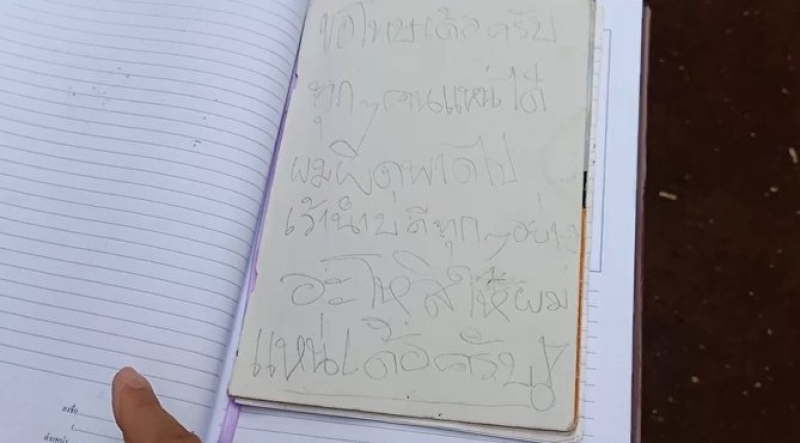 ขอโทษเด้อครับ
ทุกๆคนแหน่ได้
ผมผิดพาดไป
เว้านำบ่ดีทุกๆอย่าง
อะโหสิให้ผม
แหน่เด้อครับ!
ลงชื่อ